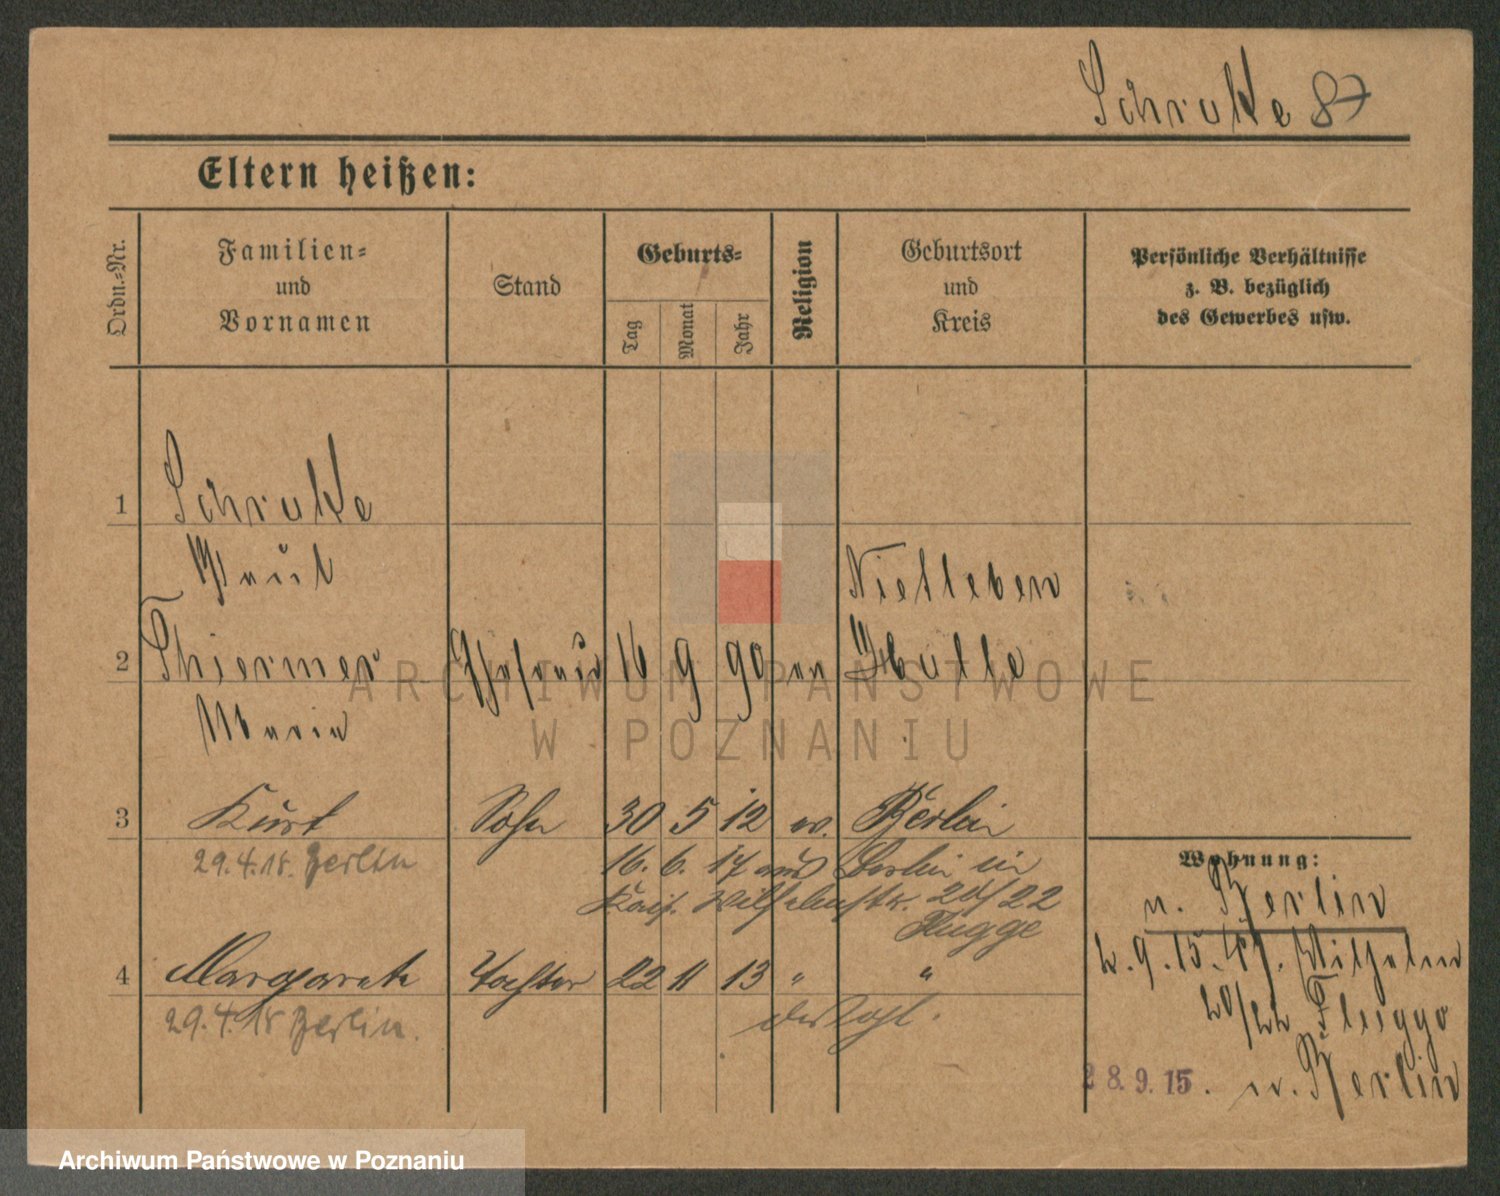 Schrutke 87
Eltern heißen:
Ordn.-Nr.
Familien-
und
Vornamen
Stand
Geburts-
Tag
Monat
Jahr
Religion
Geburtsort
und
Kreis
Persönliche Verhältnisse
z. B. bezüglich
des Gewerbes usw.
1 Schrutke
Paul
Nietleben
2 Thiermer Ehefrau 16 9 90 ev Halle
Maria
3 Kurt Sohn 30 5 12 ev. Berlin
29.4.18. Berlin
16. 6. 17 aus Berlin in
Kais. Wilhelmstr. 20/22
Flugge
4 Margarete Tochter 22 11 13 " "
29.4.18 Berlin.
Wohnung:
n. Berlin
2.9.15. Wilhelm
20/22 Fluegge
28.9.15. n. Berlin
ARCHIWUM PAŃSTWOWE
W POZNANIU
Archiwum Państwowe w Poznaniu